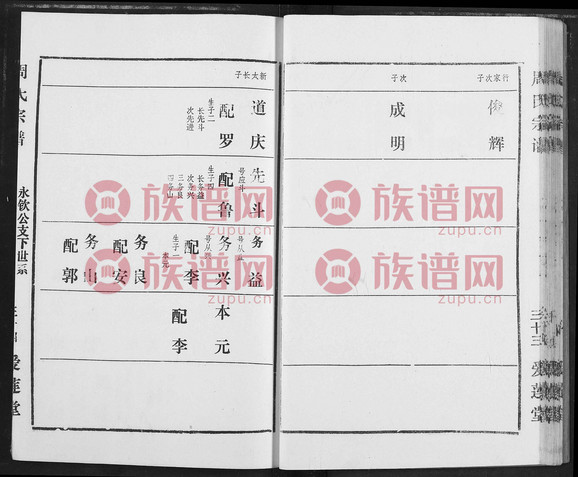 行宗次子
俊辉
次子
成明
三十三 爱莲堂
周氏宗谱
永钦公支下世系
爱莲堂
新大长子
道庆
配罗
生子二
长先斗
次先进
先斗
号应斗
配鲁
生子四
长务益
次务兴
三务良
四务山
务益
号从益
务兴
配李
生子一
本元
务良
配安
务山
配郭
本元
配李
族谱网
zupu.cn
族谱网
zupu.cn
族谱网
zupu.cn
族谱网
zupu.cn